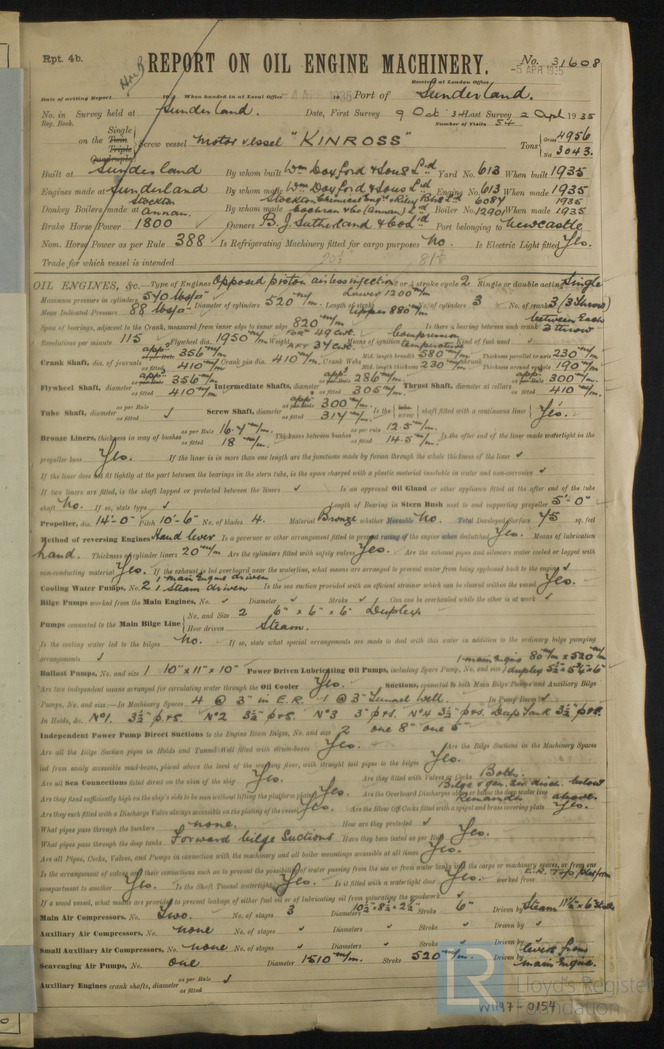 Rpt. 4b.
REPORT ON OIL ENGINE MACHINERY.
No. 31608
-5 APR 1935
Received at London Office
Date of writing Report 19 When handed in at Local Office Port of Sunderland.
No. in Survey held at Sunderland. Date, First Survey 9 Oct 34 Last Survey 2 April 1935
Reg. Book. Number of Visits 54
Single
on the Twin Screw vessel Motor vessel "KINROSS" Tons Gross 4956
Triple
Quadruple Net 3043.
Built at Sunderland By whom built Wm Doxford & Sons Ld Yard No. 613 When built 1935
Engines made at Sunderland By whom made Wm Doxford & Sons Ld Engine No. 613 When made 1935
Stockton Stockton Chemical Engrs & Riley Boilers Ld 6084 1935
Donkey Boilers made at Annan. By whom made Cochran & Co (Annan) Ld Boiler No. 12901 When made 1935
Brake Horse Power 1800 Owners B. J. Sutherland & Co Ld Port belonging to Newcastle
Nom. Horse Power as per Rule 388 Is Refrigerating Machinery fitted for cargo purposes No. Is Electric Light fitted Yes.
Trade for which vessel is intended
OIL ENGINES, &c. Type of Engines Opposed piston airless injection 2 or 4 stroke cycle 2 Single or double acting Single
Maximum pressure in cylinders 570 lbs/□" Diameter of cylinders 520 m/m. Length of stroke Lower 1200 m/m Upper 880 m/m No. of cylinders 3 No. of cranks 3 (3 throw)
Mean Indicated Pressure 88 lbs/□"
Span of bearings, adjacent to the Crank, measured from inner edge to inner edge 820 m/m. Is there a bearing between each crank between each 3 throw
Revolutions per minute 115 Flywheel dia. 1950 m/m Weight For'd 49 Cwt. Aft 34 Cwt. Means of ignition Compression temperature Kind of fuel used
Crank Shaft, dia. of journals appd 356 m/m as fitted 410 m/m Crank pin dia. 410 m/m. Crank Webs Mid. length breadth 580 m/m Mid. length thickness 230 m/m Thickness parallel to axis 230 m/m Thickness around eyehole 190 m/m
Flywheel Shaft, diameter appd 356 m/m as fitted 410 m/m. Intermediate Shafts, diameter appd 286 m/m as fitted 305 m/m. Thrust Shaft, diameter at collars appd 300 m/m as fitted 410 m/m.
Tube Shaft, diameter as per Rule as fitted Screw Shaft, diameter appd 300 m/m as fitted 317 m/m. Is the screw shaft fitted with a continuous liner Yes.
Bronze Liners, thickness in way of bushes as per Rule 16.4 m/m. as fitted 18 m/m. Thickness between bushes as per rule 12.5 m/m. as fitted 14.5 m/m. Is the after end of the liner made watertight in the
propeller boss Yes. If the liner is in more than one length are the junctions made by fusion through the whole thickness of the liner
If the liner does not fit tightly at the part between the bearings in the stern tube, is the space charged with a plastic material insoluble in water and non-corrosive
If two liners are fitted, is the shaft lapped or protected between the liners Is an approved Oil Gland or other appliance fitted at the after end of the tube
shaft No. If so, state type Length of Bearing in Stern Bush next to and supporting propeller 5'-0"
Propeller, dia. 14'-0" Pitch 10'-6" No. of blades 4. Material Bronze whether Moveable No. Total Developed Surface 75 sq. feet
Method of reversing Engines Hand lever Is a governor or other arrangement fitted to prevent racing of the engine when declutched Yes. Means of lubrication
hand. Thickness of cylinder liners 20 m/m Are the cylinders fitted with safety valves Yes. Are the exhaust pipes and silencers water cooled or lagged with
non-conducting material Yes. If the exhaust is led overboard near the waterline, what means are arranged to prevent water from being syphoned back to the engine
Cooling Water Pumps, No. 2 1 main engine driven 1 steam driven Is the sea suction provided with an efficient strainer which can be cleared within the vessel Yes.
Bilge Pumps worked from the Main Engines, No. Diameter Stroke Can one be overhauled while the other is at work
Pumps connected to the Main Bilge Line No. and Size 2 6" x 6" x 6" Duplex
How driven Steam.
Is the cooling water led to the bilges No. If so, state what special arrangements are made to deal with this water in addition to the ordinary bilge pumping
arrangements 1-main engine 80 m/m x 520 m/m
Ballast Pumps, No. and size 1 10" x 11" x 10" Power Driven Lubricating Oil Pumps, including Spare Pump, No. and size 1 duplex
Are two independent means arranged for circulating water through the Oil Cooler Yes. Suctions, connected to both Main Bilge Pumps and Auxiliary Bilge
Pumps, No. and size:—In Machinery Spaces 4 @ 3" in E.R. 1 @ 3" Tunnel Well. In Pump Room
In Holds, &c. No 1. 3½" p&s. No 2 3½" p&s. No 3 3" p&s. No 4 3½" p&s. Deep Tank 3½" p&s.
Independent Power Pump Direct Suctions to the Engine Room Bilges, No. and size 2 one 8" one 5"
Are all the Bilge Suction pipes in Holds and Tunnel Well fitted with strum-boxes Yes. Are the Bilge Suctions in the Machinery Spaces
led from easily accessible mud-boxes, placed above the level of the working floor, with straight tail pipes to the bilges Yes.
Are all Sea Connections fitted direct on the skin of the ship Yes. Are they fitted with Valves or Cocks Both.
Are they fixed sufficiently high on the ship's side to be seen without lifting the platform plates Yes. Are the Overboard Discharges above or below the deep water line Bilge & gen. ser disch. below Remainder above.
Are they each fitted with a Discharge Valve always accessible on the plating of the vessel Yes. Are the Blow Off Cocks fitted with a spigot and brass covering plate Yes.
What pipes pass through the bunkers none. How are they protected
What pipes pass through the deep tanks Forward bilge Suctions Have they been tested as per Rule Yes.
Are all Pipes, Cocks, Valves, and Pumps in connection with the machinery and all boiler mountings accessible at all times Yes.
Is the arrangement of valves and their connections such as to prevent the possibility of water passing from the sea or from water tanks into the cargo or machinery spaces, or from one
compartment to another Yes. Is the Shaft Tunnel watertight Yes. Is it fitted with a watertight door Yes. worked from E.R. Top platform
If a wood vessel, what means are provided to prevent leakage of either fuel oil or lubricating oil from saturating the woodwork
Main Air Compressors, No. Two. No. of stages 3 Diameters 10½" x 8½" x 2½" Stroke 6" Driven by Steam
Auxiliary Air Compressors, No. none No. of stages Diameters Stroke Driven by
Small Auxiliary Air Compressors, No. none No. of stages Diameters Stroke Driven by
Scavenging Air Pumps, No. one Diameter 1510 m/m. Stroke 520 m/m. Driven by levers from main Engine.
Auxiliary Engines crank shafts, diameter as per Rule as fitted
LR Lloyd's Register Foundation
W1197-0154